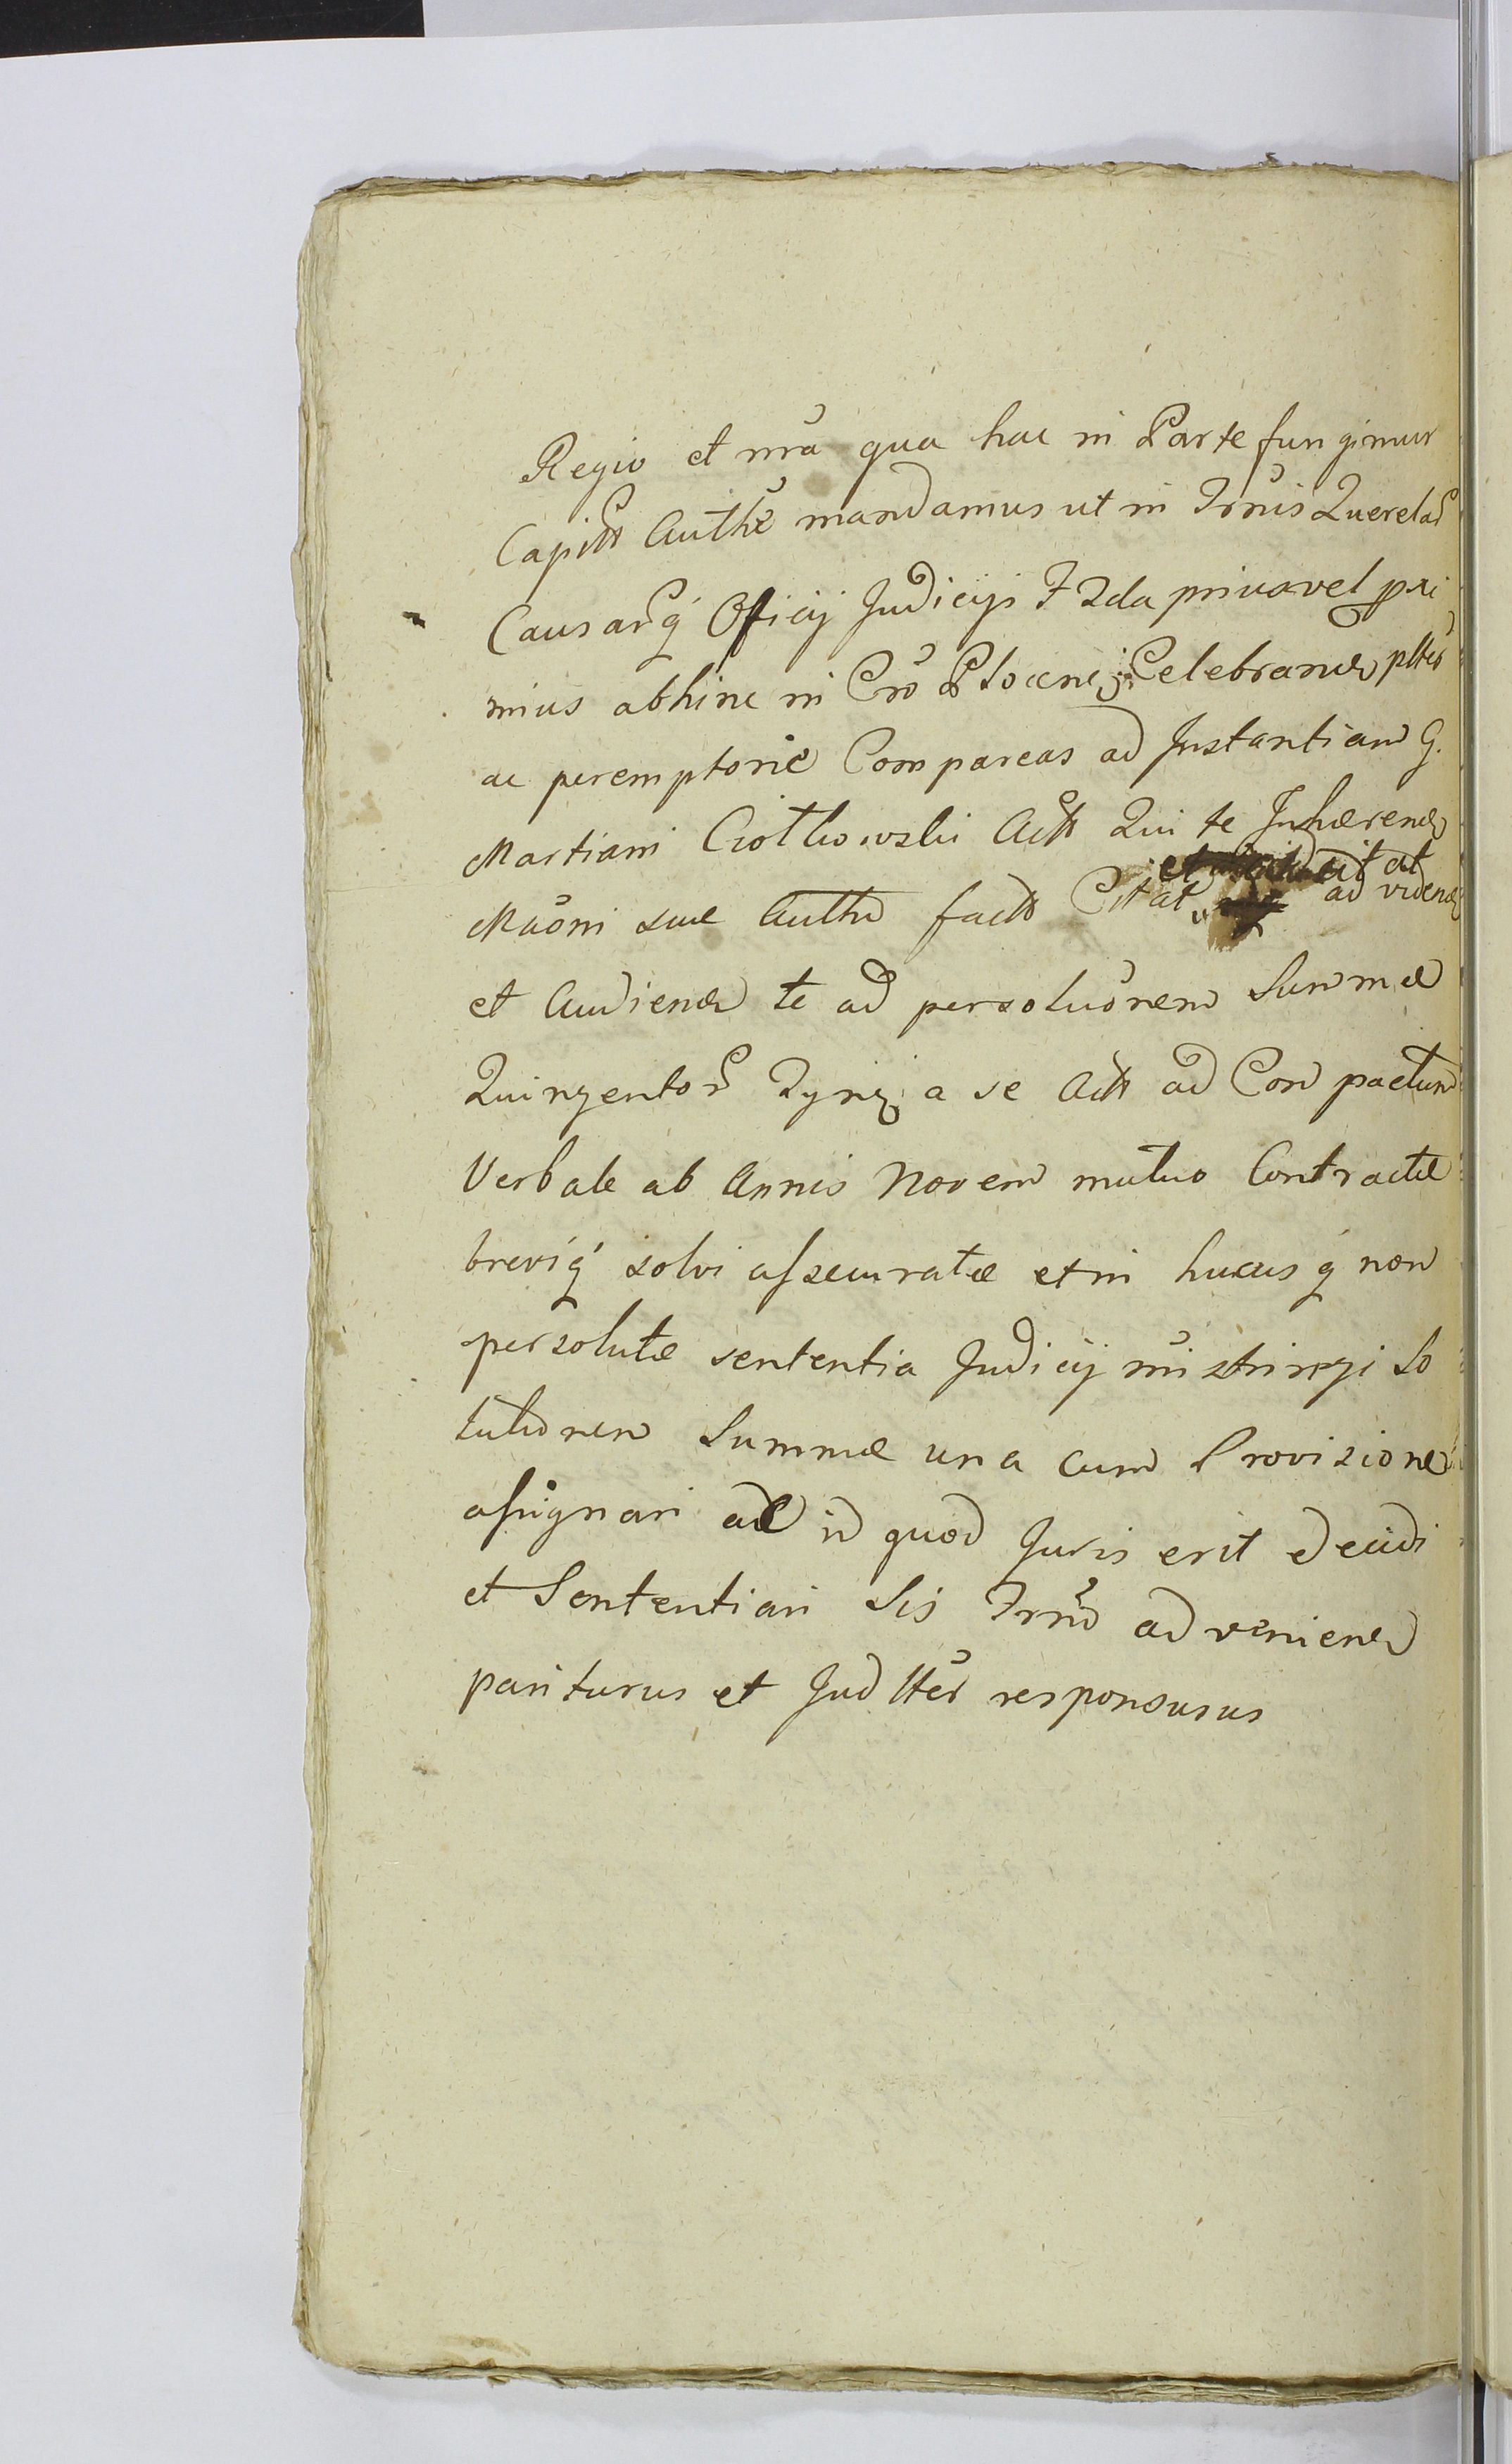 Regio et nrã qua hac in Parte fungimur
Capitt Authẽ mandamus ut in Trnis Querelar
Causarq́ Officij Judicijs F 2da priuavel pri
mius abhinc in Crõ Plocen; Celebrand plter
ac peremptorie Compareas ad Instantiam G.
Martiani Ciołkowski Actt Qui te Inhærend
cit at
Mãoni suæ Authẽ factt Citat ad videnď
et Audienď te ad persoluõnem Summæ
Quingentor Tynf; a se Actt ad Con pactum
Verbale ab Annis Novem mutuo Contractæ
breviq́ solvi assecuratæ et in hucusq́ non
persolutæ sententia Judicij nri stringi So
lutionem Summæ una cum Provisione
assignari ac id quod Juris erit decidi
et Sententiari Sis Trnũ advenienď
pariturus et Judtter responsurus